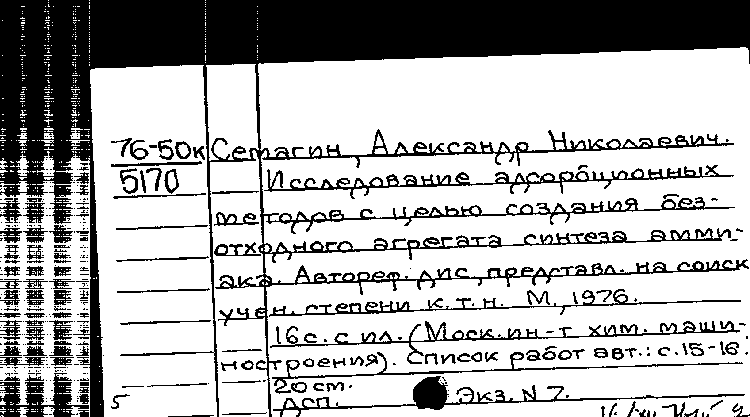 76-50к Сетагин, Александр Николаевич.
5170 Исследование адсорбционных
методов с целью создания без-
отходного агрегата синтеза амми-
ака. Автореф. дис., представл. на соиск
учен. степени к.т.н. М., 1976.
16 с. с ил. (Моск. ин-т хим. маши-
ностроения). Список работ авт.: с. 15-16.
20 см.
5 Дсп. Экз. N 7.